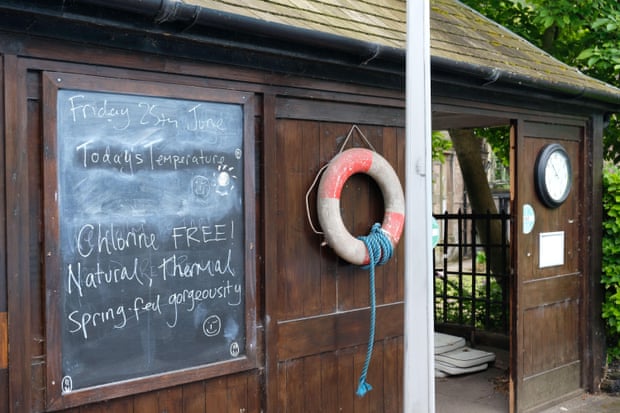 Friday 25th June
Today's Temperature
Chlorine FREE!
Natural, Thermal
Spring-fed gorgeousity